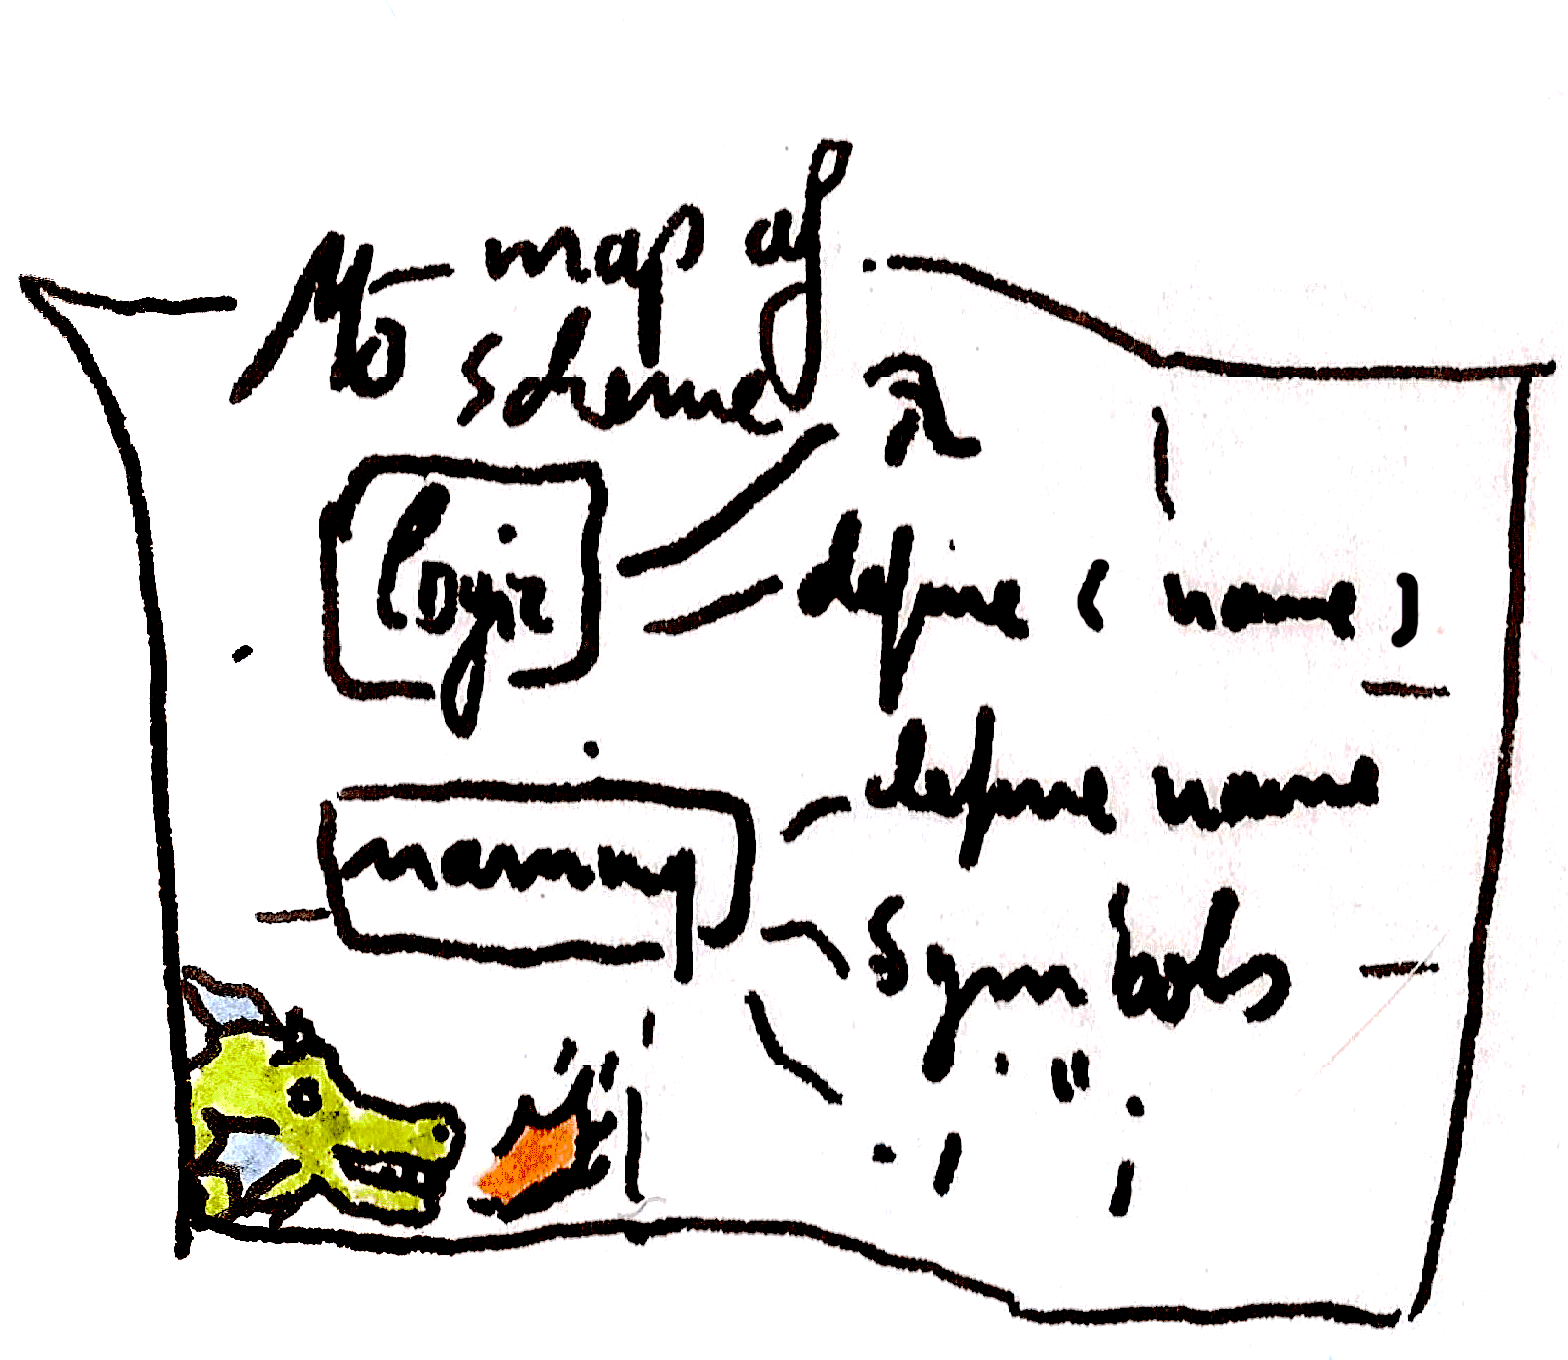 Mo map of
scheme
λ
logic
define ( name )
define name
naming
symbols